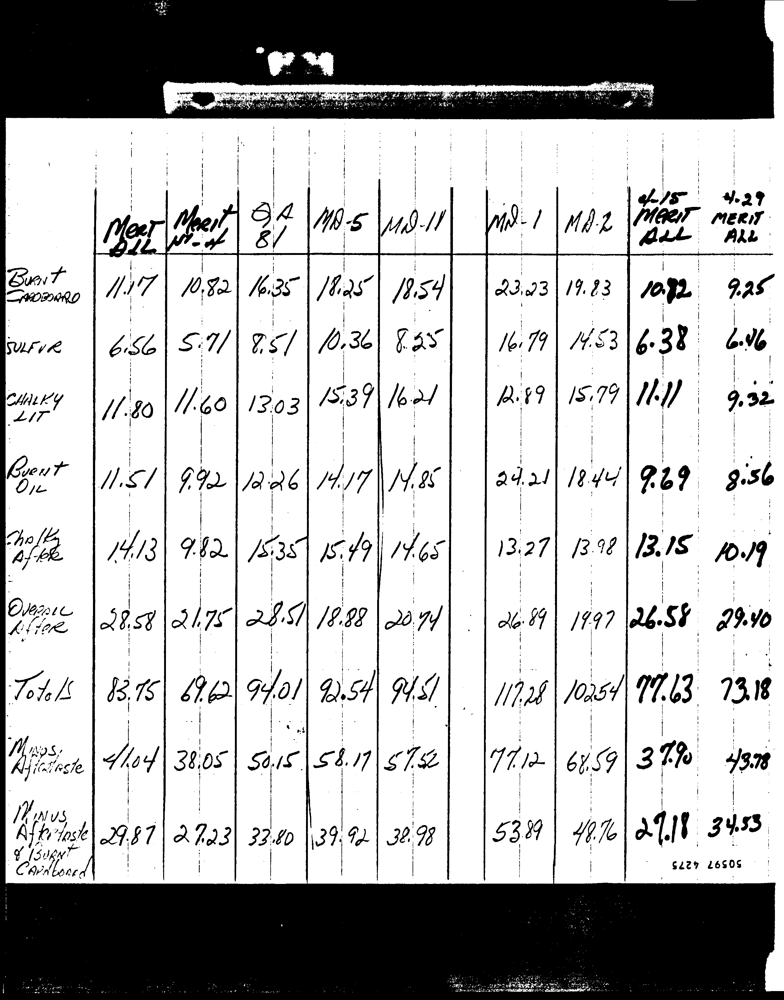 4-15 4-29
Merit Merit QA MD-5 MD-11 MD-1 MD-2 MERIT MERIT
ALL 81 ALL ALL
Burnt
CARDBOARD 11.17 10.82 16.35 18.25 18.54 23.23 19.83 10.72 9.25
SULFUR 6.56 5.71 8.51 10.36 8.25 16.79 14.53 6.38 6.46
CHALKY
LIT 11.80 11.60 13.03 15.39 16.21 12.89 15.79 11.11 9.32
Burnt
OIL 11.51 9.92 12.26 14.17 14.85 24.21 18.44 9.69 8.56
Chalky
After 14.13 9.82 15.35 15.49 14.65 13.27 13.98 13.15 10.19
Overall
After 28.58 21.75 28.51 18.88 20.74 26.89 19.97 26.58 29.40
Totals 83.75 69.62 94.01 92.54 94.51 117.28 102.54 77.63 73.18
Minus
Aftertaste 41.04 38.05 50.15 58.17 57.52 77.12 68.59 37.90 43.78
Minus
Aftertaste 29.87 27.23 33.80 39.92 38.98 53.89 48.76 27.18 34.53
& Burnt
Cardboard
50597 4275